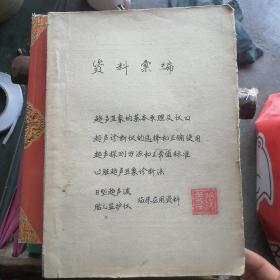 资料汇编
超声显象的基本原理及仪口
超声诊断仪的选择和正确使用
超声探测方法和正常值标准
心脏超声显象诊断法
B型超声波
胎儿监护仪 临床应用资料